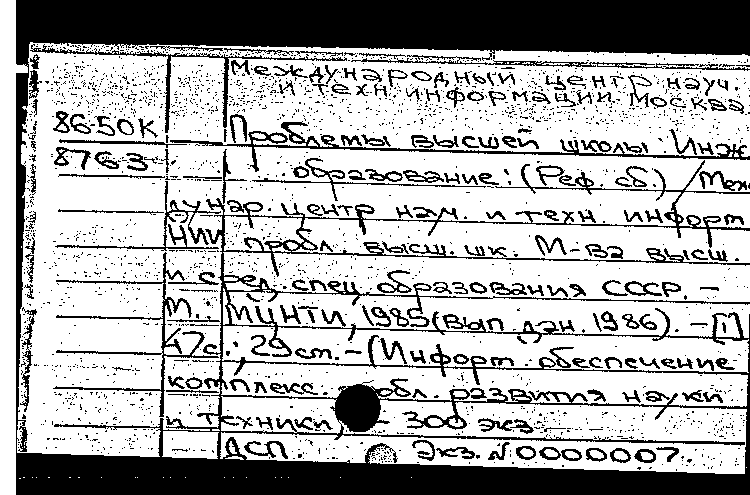 Международный центр науч.
и техн. информации. Москва.
86-50К
Проблемы высшей школы: Инж
8763
образование: (Реф. сб.) / Меж
дунар. центр науч. и техн. информ
НИИ пробл. высш. шк. М-ва высш.
и сред. спец. образования СССР. –
М.: МЦНТИ, 1985 (вып. дан. 1986). – [1]
47с.; 29см. – (Информ. обеспечение
комплекс. пробл. развития науки
и техники) – 300 экз.
ДСП. Экз. N 0000007.